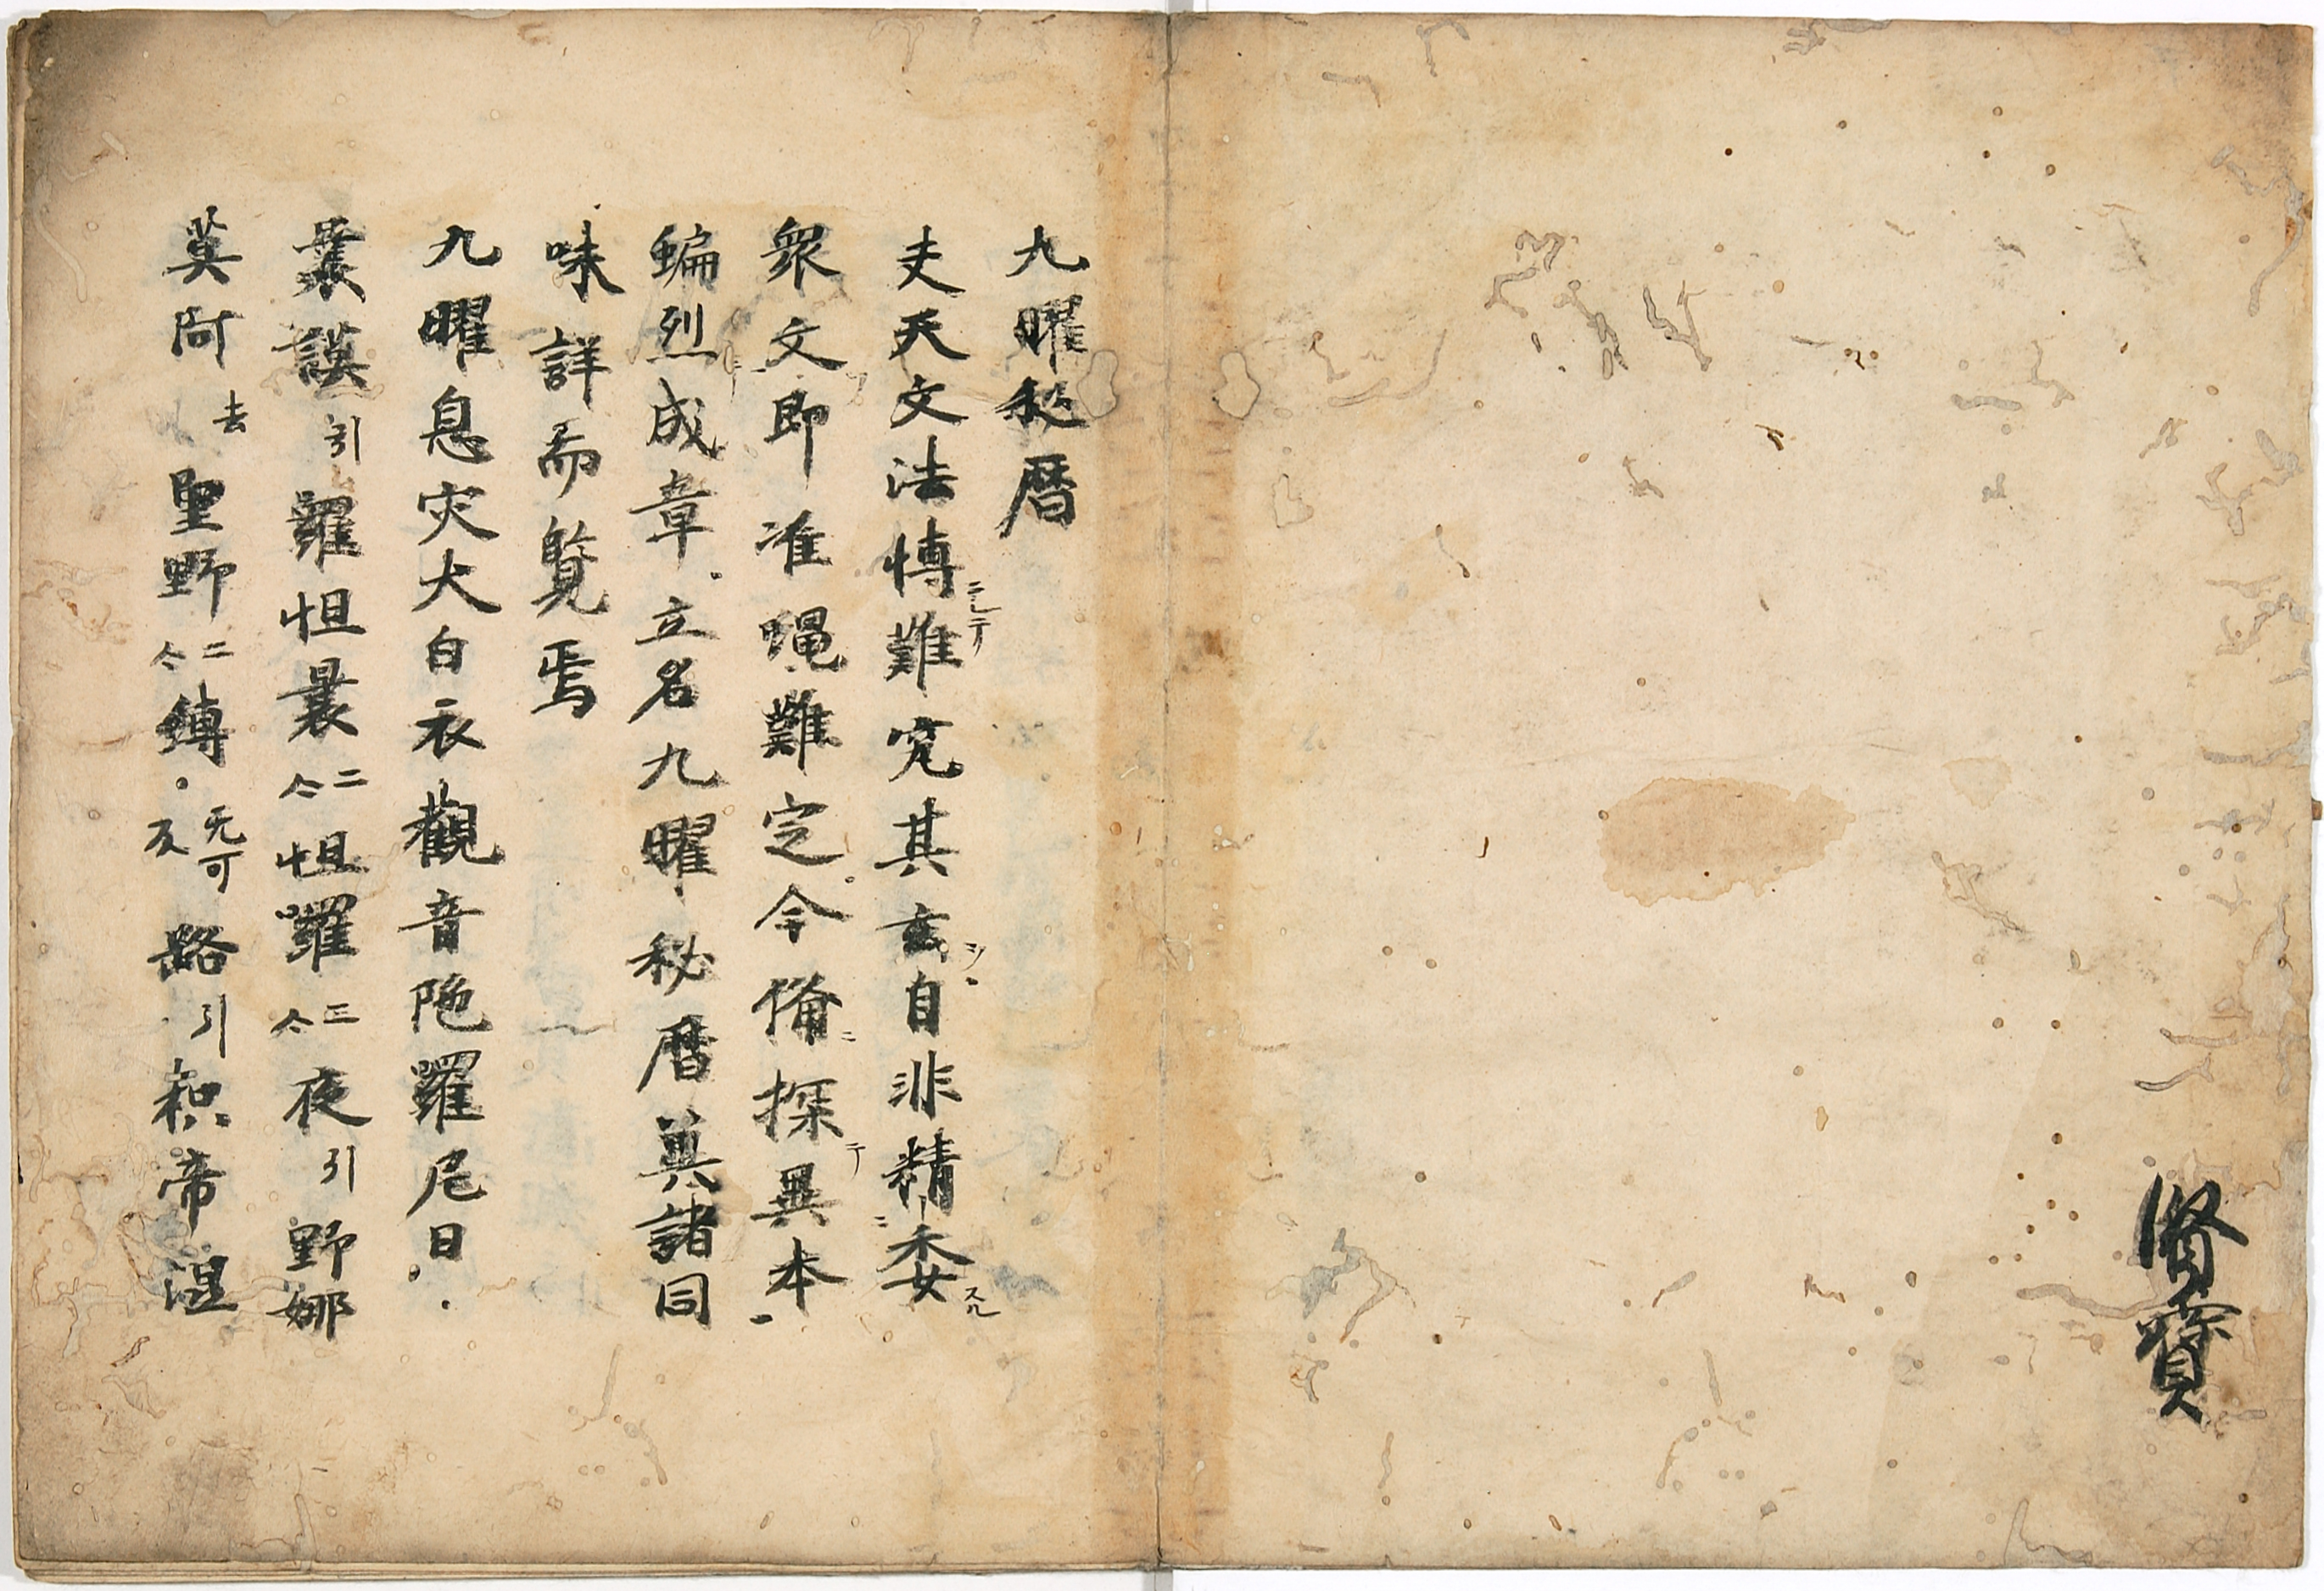 賢寳
九曜秘暦
夫天文法博難究其玄自非精委
衆文即准繩難定今備探異本
編烈成章立名九曜秘暦冀諸同
味詳而覧焉
九曜息灾大白衣觀音陁羅尼曰
曩謨引囉怛曩二合怛囉三合夜引野娜
莫阿去哩野二合縛无可反路引枳帝湿